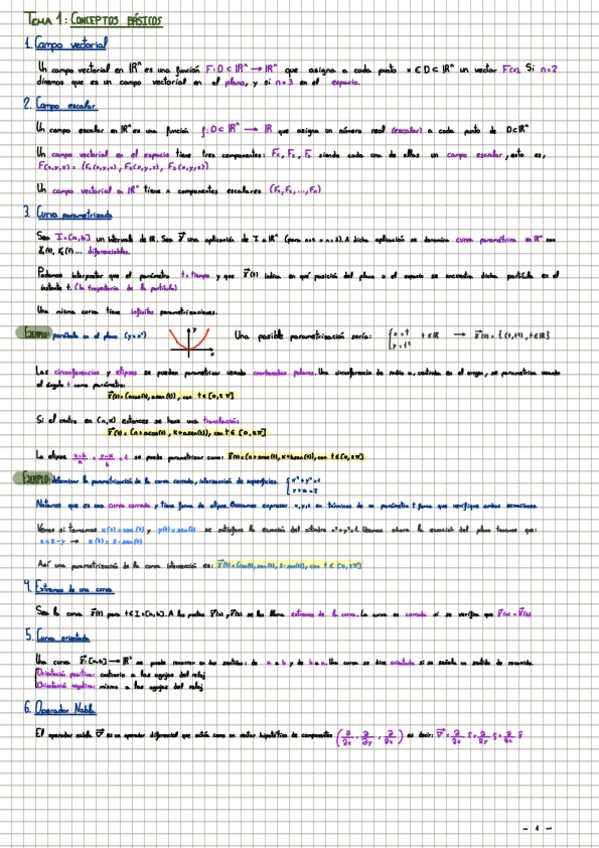 TEMA 1: CONCEPTOS BÁSICOS
1. Campo vectorial
Un campo vectorial en ℝⁿ es una función F: D ⊂ ℝⁿ → ℝⁿ que asigna a cada punto x ∈ D ⊂ ℝⁿ un vector F(x). Si n=2
diremos que es un campo vectorial en el plano, y si n=3 en el espacio.
2. Campo escalar
Un campo escalar en ℝⁿ es una función f: D ⊂ ℝⁿ → ℝ que asigna un número real (escalar) a cada punto de D⊂ℝⁿ
Un campo vectorial en el espacio tiene tres componentes: F₁, F₂, F₃ siendo cada una de ellas un campo escalar, esto es,
F(x,y,z) = (F₁(x,y,z), F₂(x,y,z), F₃(x,y,z))
Un campo vectorial en ℝⁿ tiene n componentes escalares (F₁, F₂, ..., Fₙ)
3. Curva parametrizada
Sea I=[a,b] un intervalo de ℝ. Sea γ una aplicación de I a ℝⁿ (para n=2 o n=3). A dicha aplicación se denomina curva paramétrica en ℝⁿ con
diferenciables.
Podemos interpretar que el parámetro t=tiempo y que γ(t) indica en qué posición del plano o el espacio se encuentra dicha partícula en el
instante t. (la trayectoria de la partícula)
Una misma curva tiene infinitas parametrizaciones.
EJEMPLO: parábola en el plano (y=x²) y x Una posible parametrización sería: { x=t y=t² t∈ℝ → γ(t) = {(t,t²), t∈ℝ}
Las circunferencias y elipses se pueden parametrizar usando coordenadas polares. Una circunferencia de radio a, centrada en el origen, se parametriza usando
el ángulo t como parámetro:
γ(t)=(acos(t), asen(t)), con t∈[0,2π]
Si el centro en (h,k) entonces se hace una translación:
γ(t) = (h+acos(t), k+asen(t)), con t∈[0,2π]
La elipse se puede parametrizar como: γ(t)=(h+acos(t), k+bsen(t)), con t∈[0,2π]
EJEMPLO: determinar la parametrización de la curva cerrada, intersección de superficies. { x²+y²=1 y+z=2
Notamos que es una curva cerrada y tiene forma de elipse. Buscamos expresar x,y,z en términos de un parámetro t forma que verifique ambas ecuaciones.
Vemos si tomamos x(t)=cos(t) y y(t)=sen(t) se satisface la ecuación del cilindro x²+y²=1. Usamos ahora la ecuación del plano tenemos que:
z=2-y → z(t)= 2-sen(t)
Así una parametrización de la curva intersección es: γ(t)=(cos(t), sen(t), 2-sen(t)), con t∈[0,2π]
4. Extremos de una curva
Sea la curva γ(t) para t∈I=[a,b]. A los puntos γ(a), γ(b) se les llama extremos de la curva. La curva es cerrada si se verifica que γ(a)=γ(b)
5. Curva orientada
Una curva γ:[a,b]→ℝⁿ se puede recorrer en dos sentidos: de a a b y de b a a. Una curva se dice orientada si se señala un sentido de recorrido.
Orientación positiva: contraria a las agujas del reloj
Orientación negativa: misma a las agujas del reloj
6. Operador Nabla
El operador nabla ∇ es un operador diferencial que actúa como un vector hipotético de componentes (∂/∂x, ∂/∂y, ∂/∂z) es decir: ∇=∂/∂x î+∂/∂y ĵ+∂/∂z k̂
- 1 -